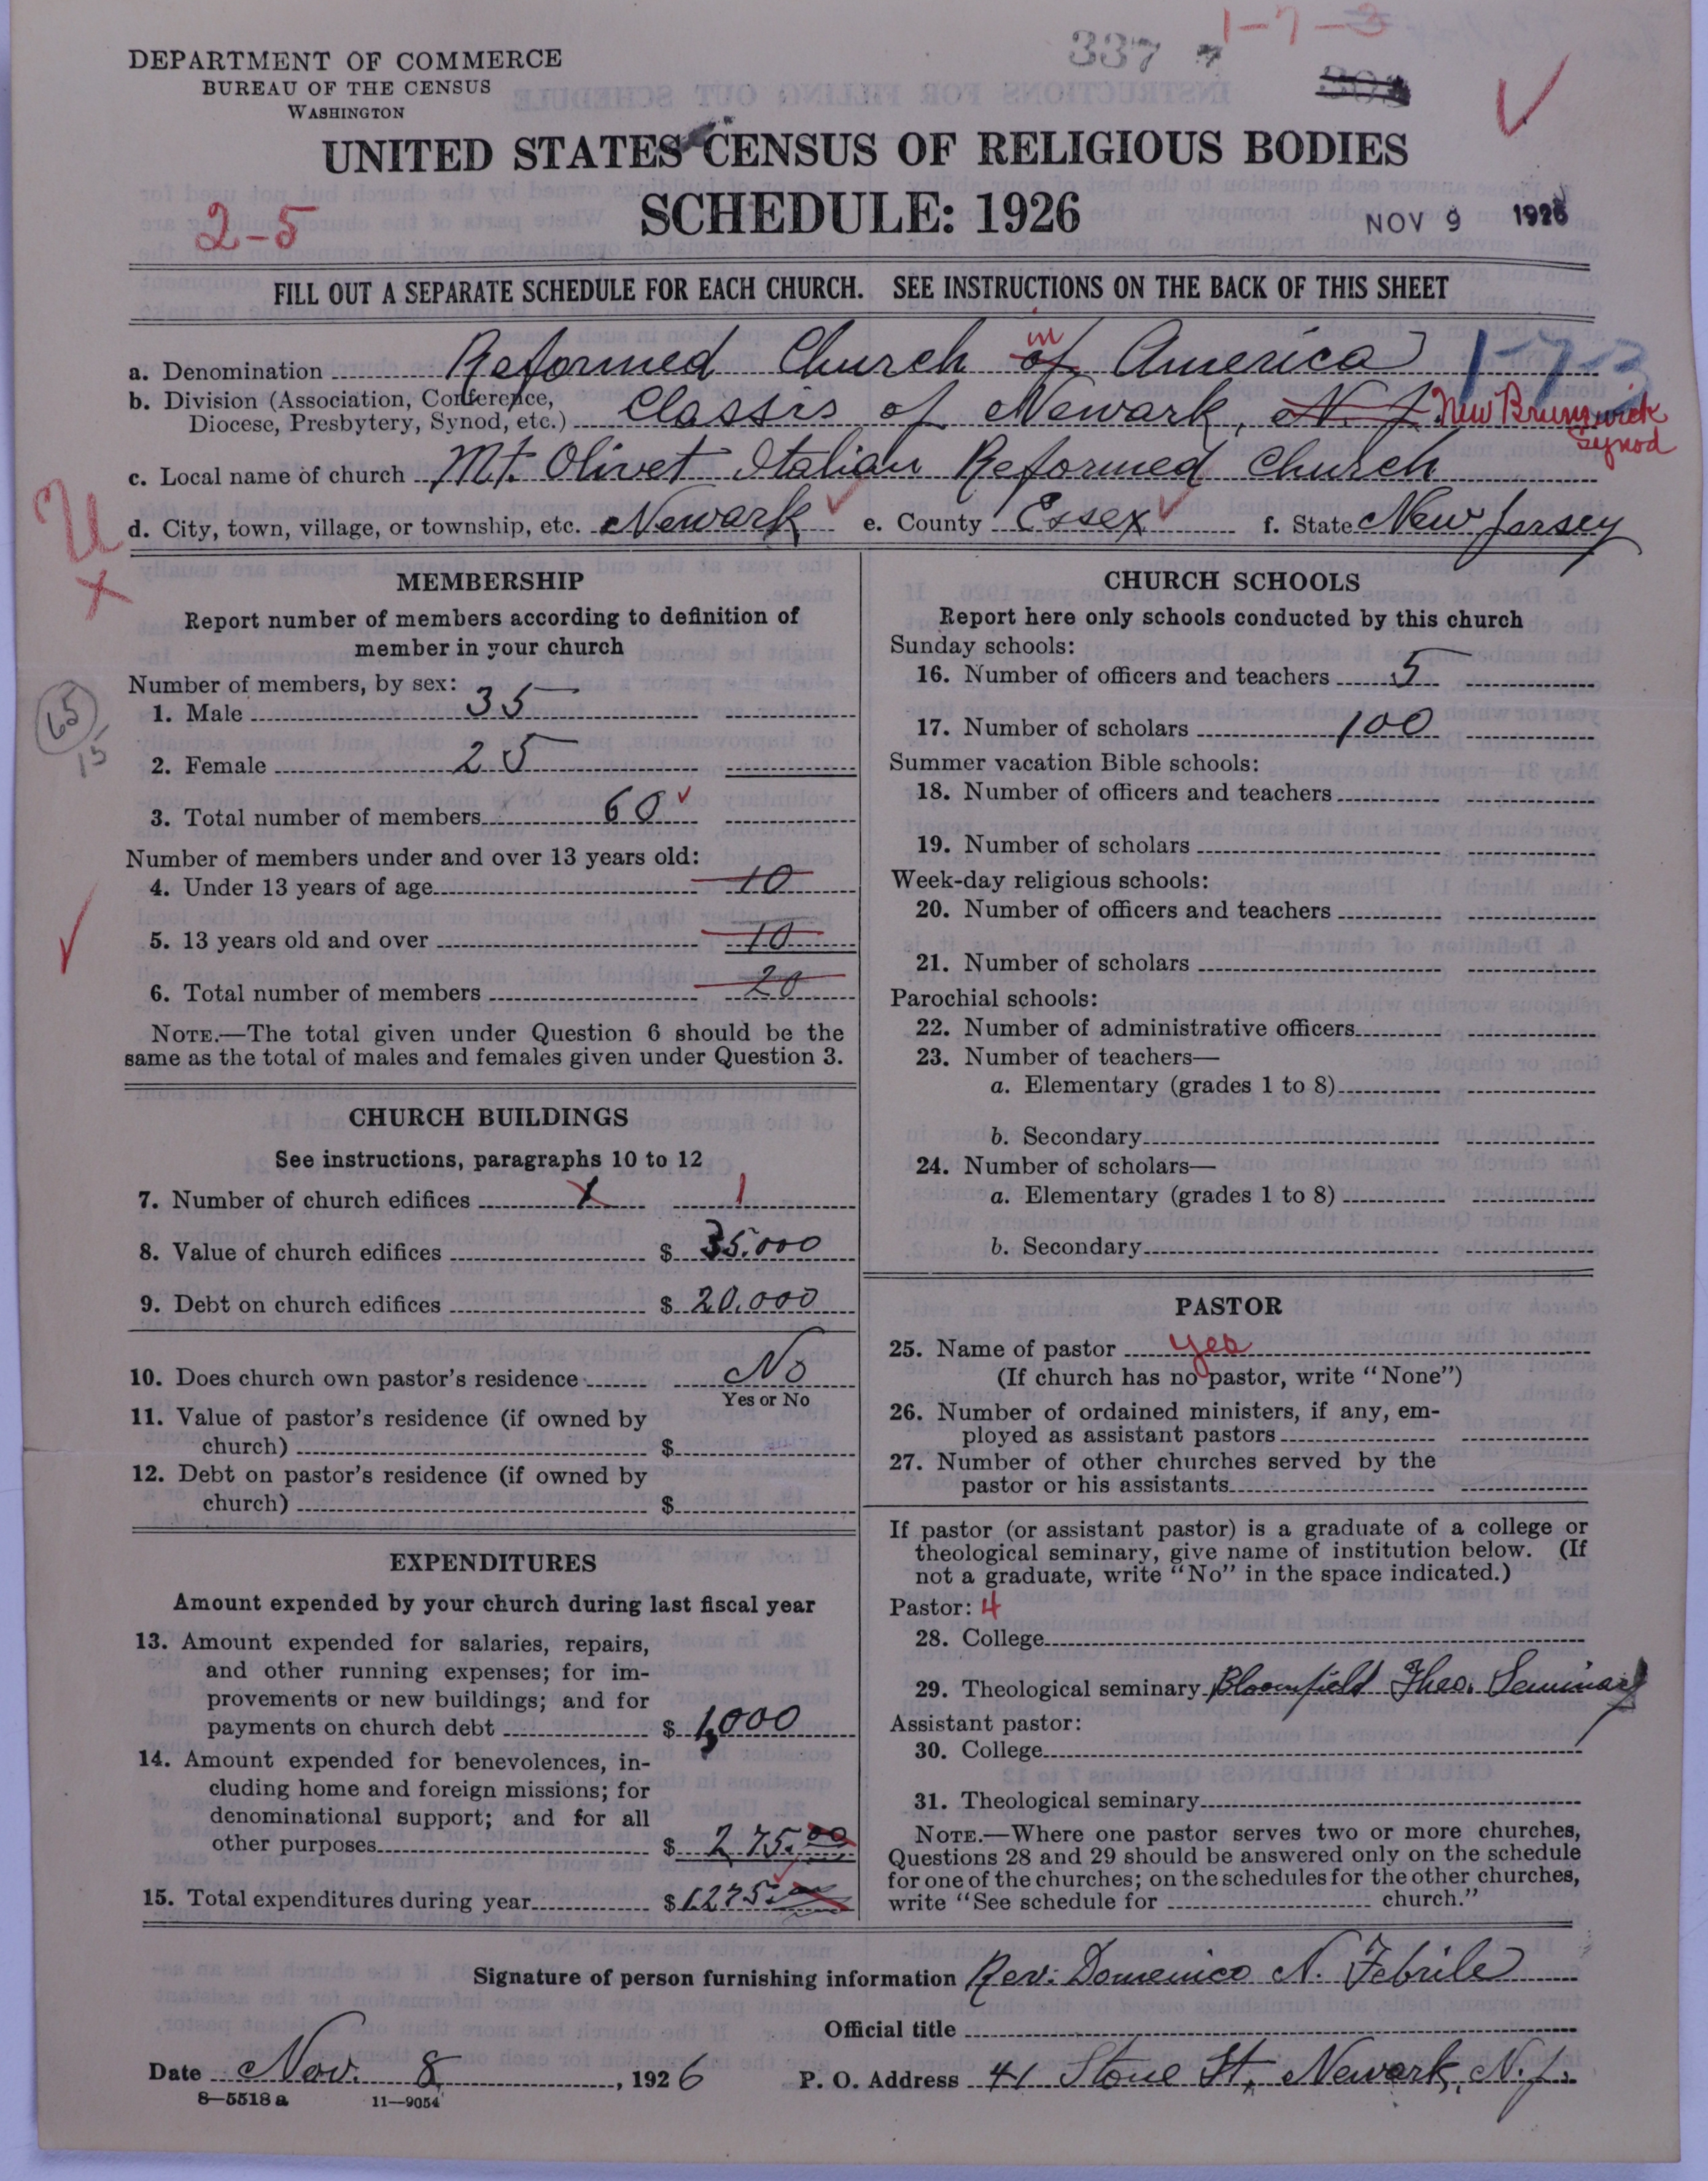 1-7-3
337
DEPARTMENT OF COMMERCE
BUREAU OF THE CENSUS
WASHINGTON
UNITED STATES CENSUS OF RELIGIOUS BODIES
SCHEDULE: 1926
2-5
NOV 9 1926
FILL OUT A SEPARATE SCHEDULE FOR EACH CHURCH. SEE INSTRUCTIONS ON THE BACK OF THIS SHEET
in
a. Denomination Reformed Church of America 1-7-3
b. Division (Association, Conference,
Diocese, Presbytery, Synod, etc.) Classis of Newark, N. J New Brunswick
Synod
c. Local name of church Mt. Olivet Italian Reformed Church
d. City, town, village, or township, etc. Newark e. County Essex f. State New Jersey
MEMBERSHIP
Report number of members according to definition of
member in your church
Number of members, by sex:
1. Male 35
65
15
2. Female 25
3. Total number of members 60
Number of members under and over 13 years old:
4. Under 13 years of age 10
5. 13 years old and over 10
6. Total number of members 20
NOTE.—The total given under Question 6 should be the
same as the total of males and females given under Question 3.
CHURCH BUILDINGS
See instructions, paragraphs 10 to 12
7. Number of church edifices 1 1
8. Value of church edifices $ 35.000
9. Debt on church edifices $ 20.000
10. Does church own pastor's residence No
Yes or No
11. Value of pastor's residence (if owned by
church) $
12. Debt on pastor's residence (if owned by
church) $
EXPENDITURES
Amount expended by your church during last fiscal year
13. Amount expended for salaries, repairs,
and other running expenses; for im-
provements or new buildings; and for
payments on church debt $ 1,000
14. Amount expended for benevolences, in-
cluding home and foreign missions; for
denominational support; and for all
other purposes $ 275.00
15. Total expenditures during year $ 1275.00
CHURCH SCHOOLS
Report here only schools conducted by this church
Sunday schools:
16. Number of officers and teachers 5
17. Number of scholars 100
Summer vacation Bible schools:
18. Number of officers and teachers
19. Number of scholars
Week-day religious schools:
20. Number of officers and teachers
21. Number of scholars
Parochial schools:
22. Number of administrative officers
23. Number of teachers—
a. Elementary (grades 1 to 8)
b. Secondary
24. Number of scholars—
a. Elementary (grades 1 to 8)
b. Secondary
PASTOR
25. Name of pastor yes
(If church has no pastor, write "None")
26. Number of ordained ministers, if any, em-
ployed as assistant pastors
27. Number of other churches served by the
pastor or his assistants
If pastor (or assistant pastor) is a graduate of a college or
theological seminary, give name of institution below. (If
not a graduate, write "No" in the space indicated.)
Pastor: 4
28. College
29. Theological seminary Bloomfield Theo. Seminary
Assistant pastor:
30. College
31. Theological seminary
NOTE.—Where one pastor serves two or more churches,
Questions 28 and 29 should be answered only on the schedule
for one of the churches; on the schedules for the other churches,
write "See schedule for church."
Signature of person furnishing information Rev. Domenico N. Febrile
Official title
Date Nov. 8, 1926 P. O. Address 41 Stone St, Newark, N. J.
8-5518a 11-9054